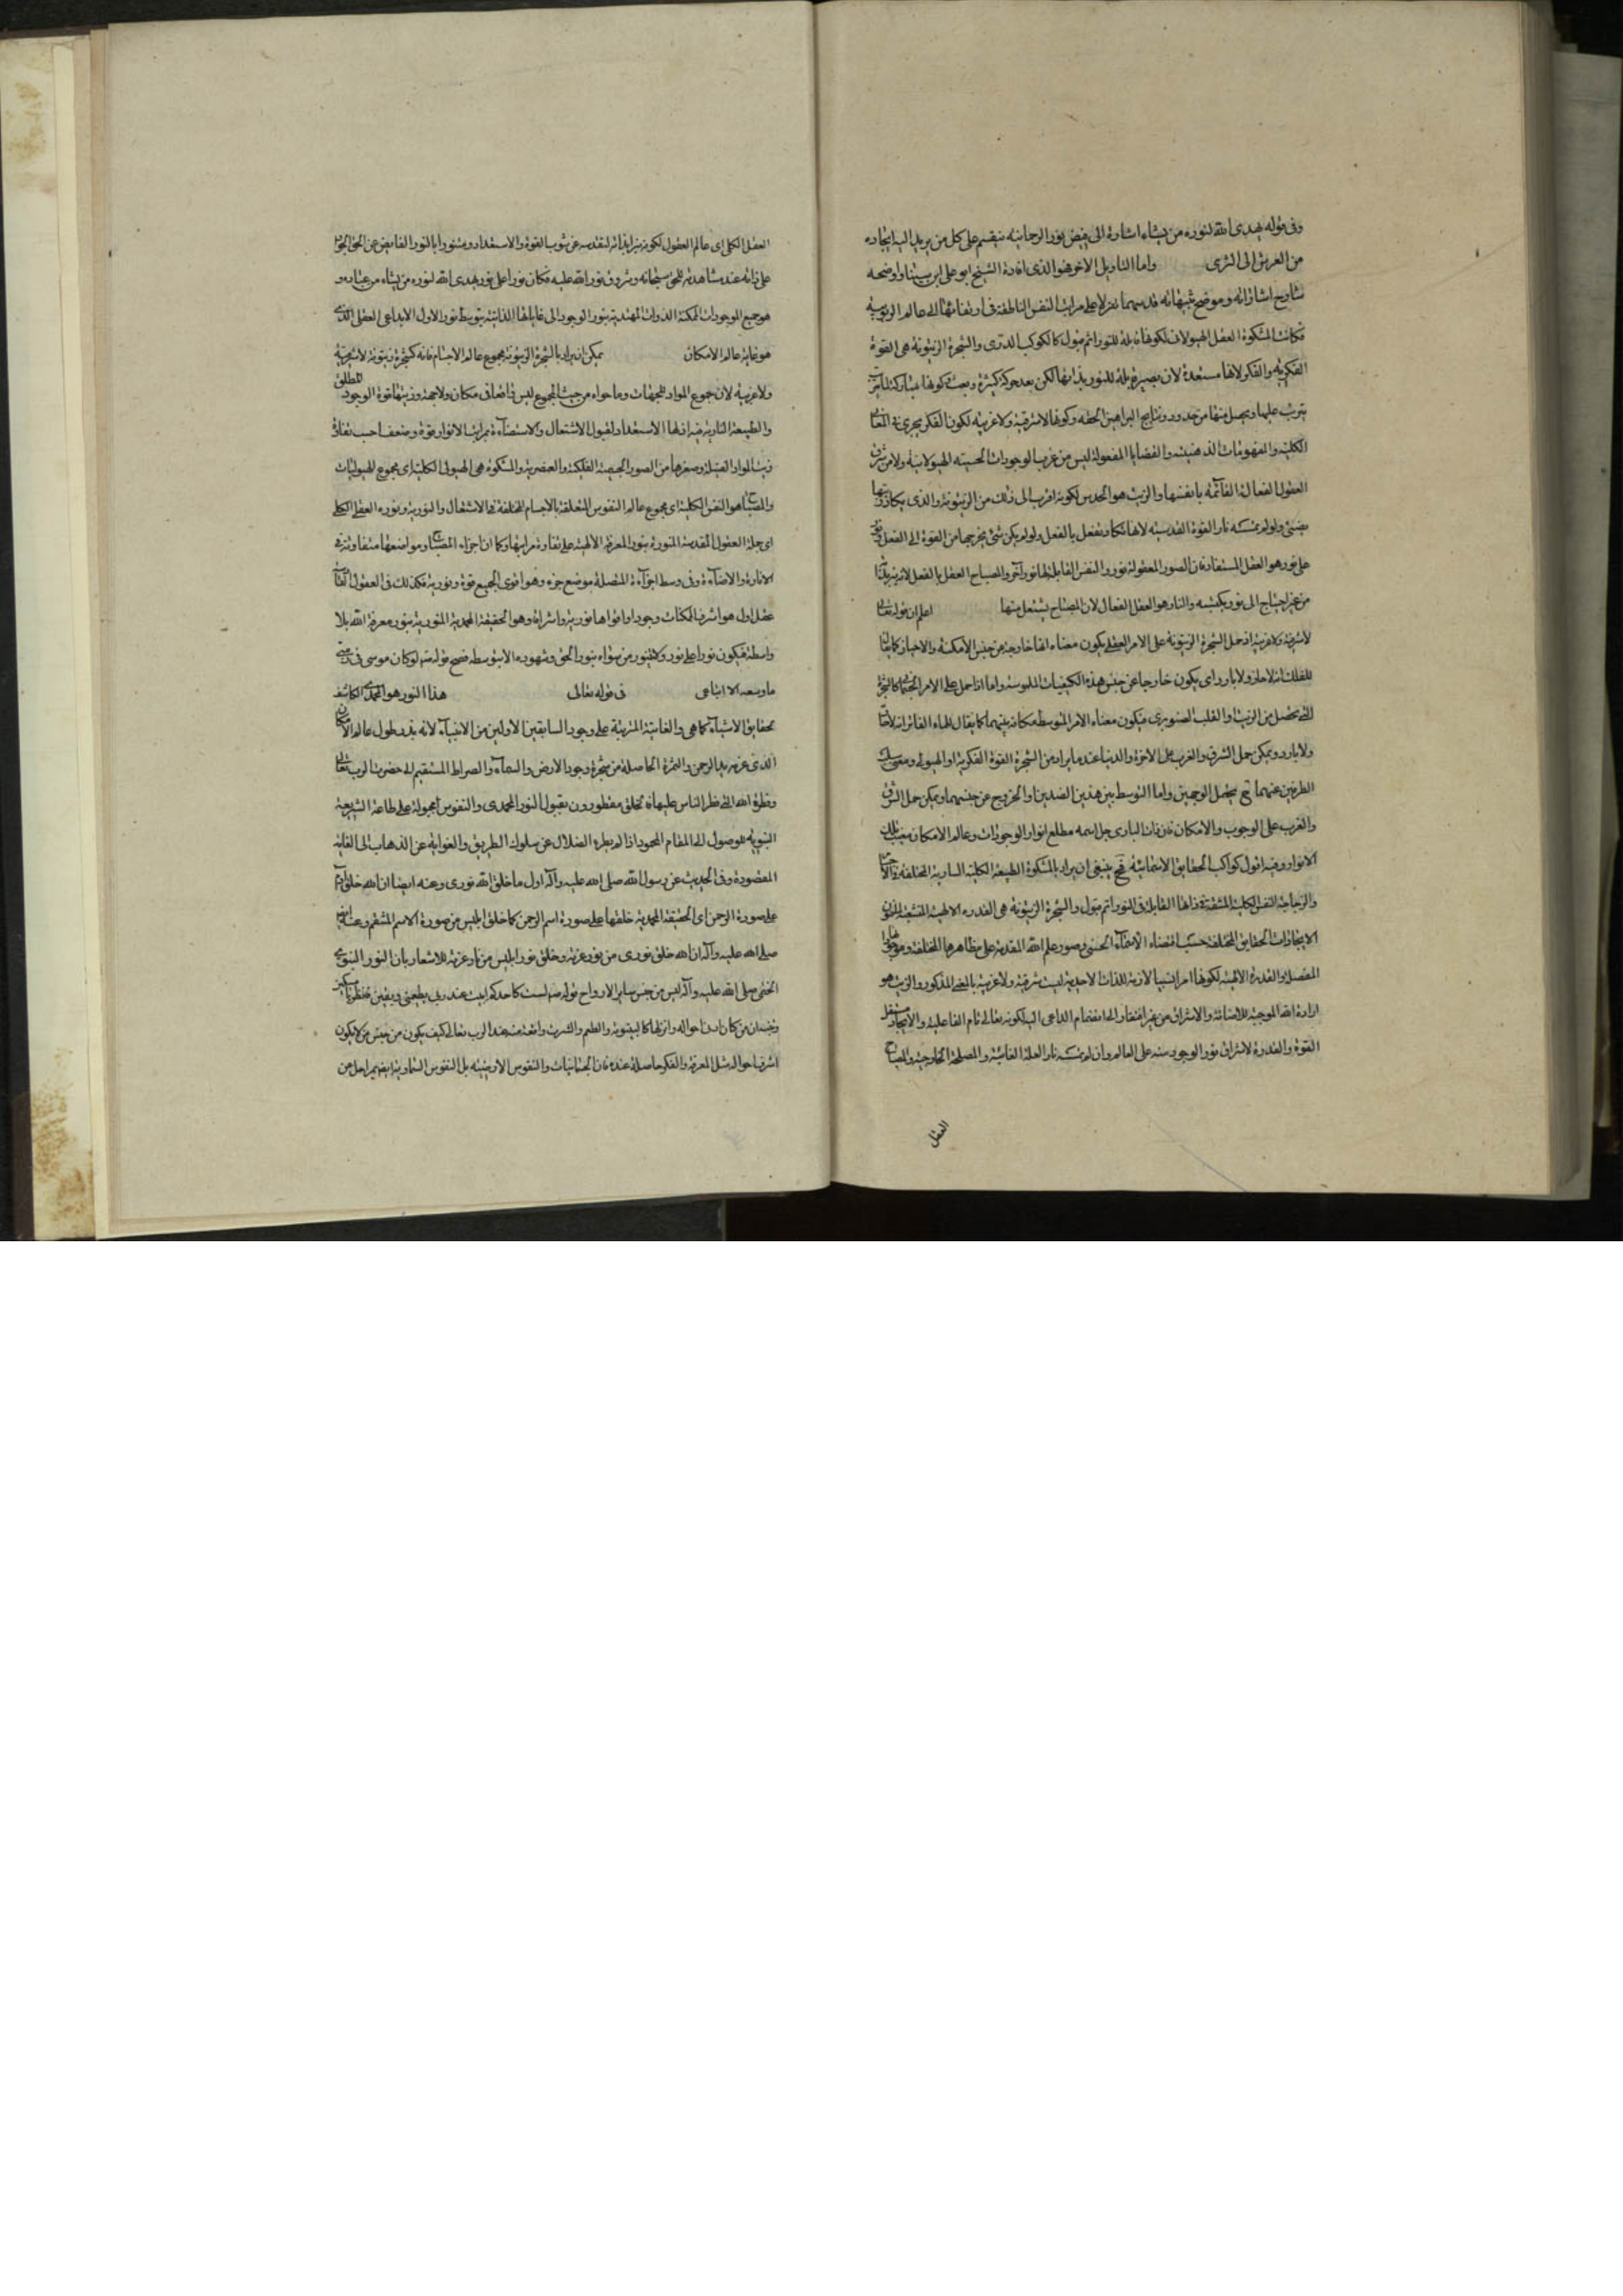 وفى قوله يهدى الله لنوره من يشاء اشارة الى فيض نور الرحمانيه ينقسم على كل من يريد اليه ايجاده
من العرش الى الثرى واما التاويل الاخر فهو الذى افاده الشيخ ابو على ابن سينا واوضحه
شارح اشاراته وموضح تنبيهاته قدسهما تنزلا على مراتب النفس الناطقة فى ارتقائها الى عالم الربوبيه
فكانت المشكوة العقل الهيولانى لكونها قابلة للنور اتم قبول كالكوكب الدرى والشجرة الزيتونة هى القوة
الفكريه والفكر لانها مستعدة لان يصير قابلة للنور بذاتها لكن بعد حركة كثيرة وبعث وكونها مباركة لما
يترتب عليها ويحصل منها من حدود ونتايج البراهين الحقه وكونها لا شرقية ولا غربيه لكون الفكر يجرى فى المعانى
الكلية والمفهومات الذهنيه والقضايا المعقولة ليس من غرب الوجودات الحسيه الهيولانيه ولا من شرق
العقول الفعالة القائمه بانفسها والزيت هو الحدس لكونه اقرب الى ذلك من الزيتونة والذى يكاد زيتها
يضئى ولو لم تمسسه نار القوة القدسيه لانها تكاد تعقل بالفعل ولو لم يكن شئ يخرجها من القوة الى الفعل ونور
على نور هو العقل المستفاد فان الصور المعقولة نور والنفس القابلة لها نور آخر والمصباح العقل بالفعل لانه نير بذاته
من غير احتياج الى نور يكتسبه والنار هو العقل الفعال لان المصباح يشتعل منها اعلم ان قوله تعالى
لا شرقية ولا غربية اذ حمل الشجرة الزيتونة على الامر العقلى يكون معناه انها خارجة من جنس الامكنة والاحياز كما يقال
للفلك انه لا حار ولا بارد اى يكون خارجا عن جنس هذه الكيفيات الملموسة واما اذا حمل على الامر الجسمانى كالشجرة
التى تحصل من الزيت او القلب الصنوبرى فيكون معناه الامر المتوسط مكانه بينهما كما يقال للماء الفاتر انه لا حار
ولا بارد ويمكن حمل الشرق والغرب على الاخرة والدنيا عند ما يراد من الشجرة القوة الفكرية او الهيولى ومعنى سلب
الطرفين عنهما ح يحتمل الوجهين واما التوسط بين هذين الضدين او الخروج عن جنسيهما ويمكن حمل الشرق
والغرب على الوجوب والامكان فان ذات البارى جل اسمه مطلع انوار الوجودات وعالم الامكان مغيب تلك
الانوار وفيه افول كواكب الحقايق الاسمائية فح ينبغى ان يراد بالمشكوة الطبيعة الكلية السارية المختلفة
والزجاجة النفس الكلية المشتقة ذاتها القابلة للنور اتم قبول والشجرة الزيتونة هى القدرة الالهية
الايجادات الحقايق المختلفة حسب اقتضاء الاسماء الحسنى وصور علم الله المقدسة على مظاهرها المختلفة
المفصل والقدرة الالهية لكونها امرا نسبيا لازمة للذات الاحدية ليست شرقية ولا غربية بالمعنى المذكور والزيت هو
ارادة الله الموجبة للاضائة والاشراق من غير افتقار الى انضمام الداعى اليه لكونه تعالى تام الفاعلية والايجاد
القوة والقدرة لاشراق نور الوجود منه على العالم وان لم تمسسه نار العلة الغائية والمصلحة الخارجية والمصباح
العقل
العقل الكلى اى عالم العقول لكونه نيرا بذاته لتقدسه عن شوب القوة والاستعداد ومتنورا بالنور الفايض عن الحق
على ذاته عند مشاهدته للحق سبحانه وشروق نور الله عليه فكان نورا على نور يهدى الله لنوره من يشاء من عباده و
هو جميع الموجودات الممكنة الذوات المهتدية بنور الوجود الى غاياتها الذاتية بتوسط نور الاول الابداعى العقل الذى
هو غاية عالم الامكان يمكن ان يراد بالشجرة الزيتونة مجموع عالم الاجسام فانه كشجرة زيتونة لا شرقية
ولا غربية لان مجموع المواد للجهات وما حواه من حيث المجموع ليس واقعا فى مكان ولا جهة وزيتها قوة الوجود المطلق
والطبيعة السارية فيه اذ لها الاستعداد لقبول الاشتعال والاستضاءة بمراتب الانوار قوة وضعفا حسب تفاوت
زيت المواد القبلة وصغرها من الصور الجسمية الفلكية والعنصرية والمشكوة هى الهيولى الكلية اى مجموع الهيوليات
والمصباح هو النفس الكلية اى مجموع عالم النفوس المتعلقة بالاجسام المختلفة فى الاشتعال والنورية ونوره العقل الكلى
اى جملة العقول المقدسة المتنورة بنور المعرفة الالهية على تفاوت مراتبها وكما ان اجزاء المصباح ومواضعها متفاوتة فى
الانارة والاضاءة وفى وسط اجزائه المتصلة موضع جزء وهو اقوى الجميع قوة ونورية فكذلك فى العقول
عقل اول هو اشرف الممكنات وجودا واقواها نورية واشراقا وهو الحقيقة المحمدية المتنورية بنور معرفة الله بلا
واسطة فيكون نورا على نور ولا يتنور من سواه بنور الحق وشهوده الا بتوسطه فصح قوله ص لو كان موسى فى
ما وسعه الا اتباعى فى قوله تعالى هذا النور هو المحمدى الكاشف
بحقايق الاشياء كما هى والغاية المترتبة على وجود السابقين الاولين من الانبياء لانه بذر طول عالم الامكان
الذى غرس بيد الرحمن والثمرة الحاصلة من شجرة وجود الارض والسماء والصراط المستقيم الى حضرت الرب تعالى
وفطرة الله التى فطر الناس عليها فالخلق مفطورون بقبول النور المحمدى والنفوس مجبولة على طاعة الشريعة
النبوية موصول الى المقام المحمود اذا لم يطرء الضلال عن سلوك الطريق والغواية عن الذهاب الى الغاية
المقصودة وفى الحديث عن رسول الله صلى الله عليه وآله اول ما خلق الله نورى وعنه ايضا ان الله خلق آدم
على صورة الرحمن اى الحقيقة المحمدية خلقها على صورة اسم الرحمن كما خلق ابليس من صورة الاسم المنتقم وعنه ايضا
صلى الله عليه وآله ان الله خلق نورى من نور عزته وخلق نور ابليس من نار عزته للاشعار بان النور النبوى
الختمى صلى الله عليه وآله ليس من جنس ساير الارواح قوله ص لست كاحدكم ابيت عند ربى يطعمنى ويسقين فانظر يا مسكين
من كان ادنى احواله وانزلها كالبيتوتة والطعم والشرب واقعة منه عند الرب تعالى كيف يكون من جنس من لا يكون
اشرف احواله مثل المعرفة والفكر حاصلة عنده فان الجسمانيات والنفوس الارضية بل النفوس السماوية ايضا بمراحل من